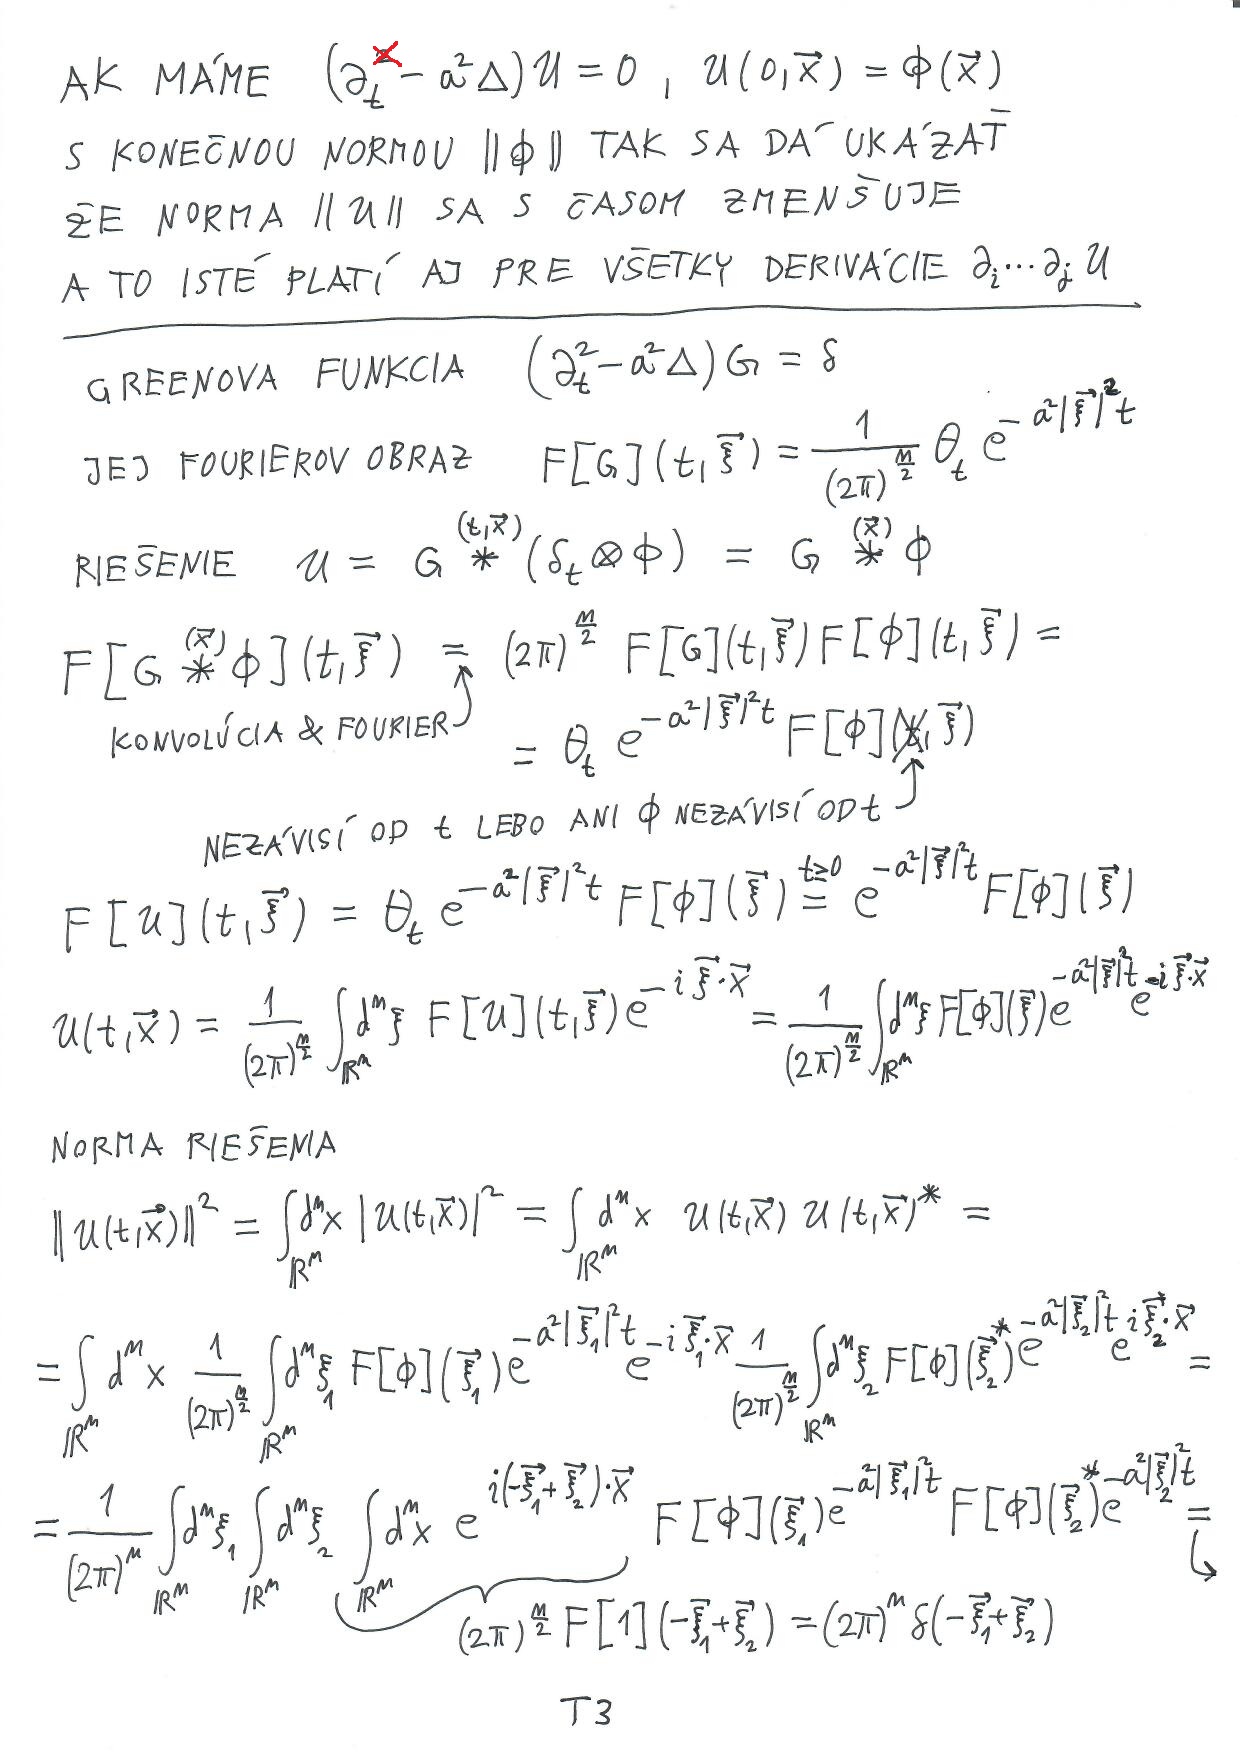 AK MÁME (∂_t^2 - a²Δ)u = 0 , u(0,x⃗) = ϕ(x⃗)
S KONEČNOU NORMOU ||ϕ|| TAK SA DÁ UKÁZAŤ
ŽE NORMA ||u|| SA S ČASOM ZMENŠUJE
A TO ISTÉ PLATÍ AJ PRE VŠETKY DERIVÁCIE ∂_i...∂_j u
GREENOVA FUNKCIA (∂_t^2 - a²Δ)G = δ
JEJ FOURIEROV OBRAZ F[G](t,ξ⃗) = 1/(2π)^{n/2} θ_t e^{-a²|ξ⃗|²t}
RIEŠENIE u = G *^{(t,x⃗)} (δ_t ⊗ ϕ) = G *^{(x⃗)} ϕ
F[G *^{(x⃗)} ϕ](t,ξ⃗) = (2π)^{n/2} F[G](t,ξ⃗) F[ϕ](t,ξ⃗) =
KONVOLÚCIA & FOURIER
= θ_t e^{-a²|ξ⃗|²t} F[ϕ](t,ξ⃗)
NEZÁVISÍ OD t LEBO ANI ϕ NEZÁVISÍ OD t
F[u](t,ξ⃗) = θ_t e^{-a²|ξ⃗|²t} F[ϕ](ξ⃗) =^{t≥0} e^{-a²|ξ⃗|²t} F[ϕ](ξ⃗)
u(t,x⃗) = 1/(2π)^{n/2} ∫_{ℝⁿ} dⁿξ F[u](t,ξ⃗) e^{-iξ⃗·x⃗} = 1/(2π)^{n/2} ∫_{ℝⁿ} dⁿξ F[ϕ](ξ⃗) e^{-a²|ξ⃗|²t} e^{-iξ⃗·x⃗}
NORMA RIEŠENIA
||u(t,x⃗)||² = ∫_{ℝⁿ} dⁿx |u(t,x⃗)|² = ∫_{ℝⁿ} dⁿx u(t,x⃗) u(t,x⃗)* =
= ∫_{ℝⁿ} dⁿx 1/(2π)^{n/2} ∫_{ℝⁿ} dⁿξ₁ F[ϕ](ξ⃗₁) e^{-a²|ξ⃗₁|²t} e^{-iξ⃗₁·x⃗} 1/(2π)^{n/2} ∫_{ℝⁿ} dⁿξ₂ F[ϕ](ξ⃗₂)* e^{-a²|ξ⃗₂|²t} e^{iξ⃗₂·x⃗} =
= 1/(2π)ⁿ ∫_{ℝⁿ} dⁿξ₁ ∫_{ℝⁿ} dⁿξ₂ ∫_{ℝⁿ} dⁿx e^{i(-ξ⃗₁+ξ⃗₂)·x⃗} F[ϕ](ξ⃗₁) e^{-a²|ξ⃗₁|²t} F[ϕ](ξ⃗₂)* e^{-a²|ξ⃗₂|²t} =
(2π)^{n/2} F[1](-ξ⃗₁+ξ⃗₂) = (2π)ⁿ δ(-ξ⃗₁+ξ⃗₂)
T3